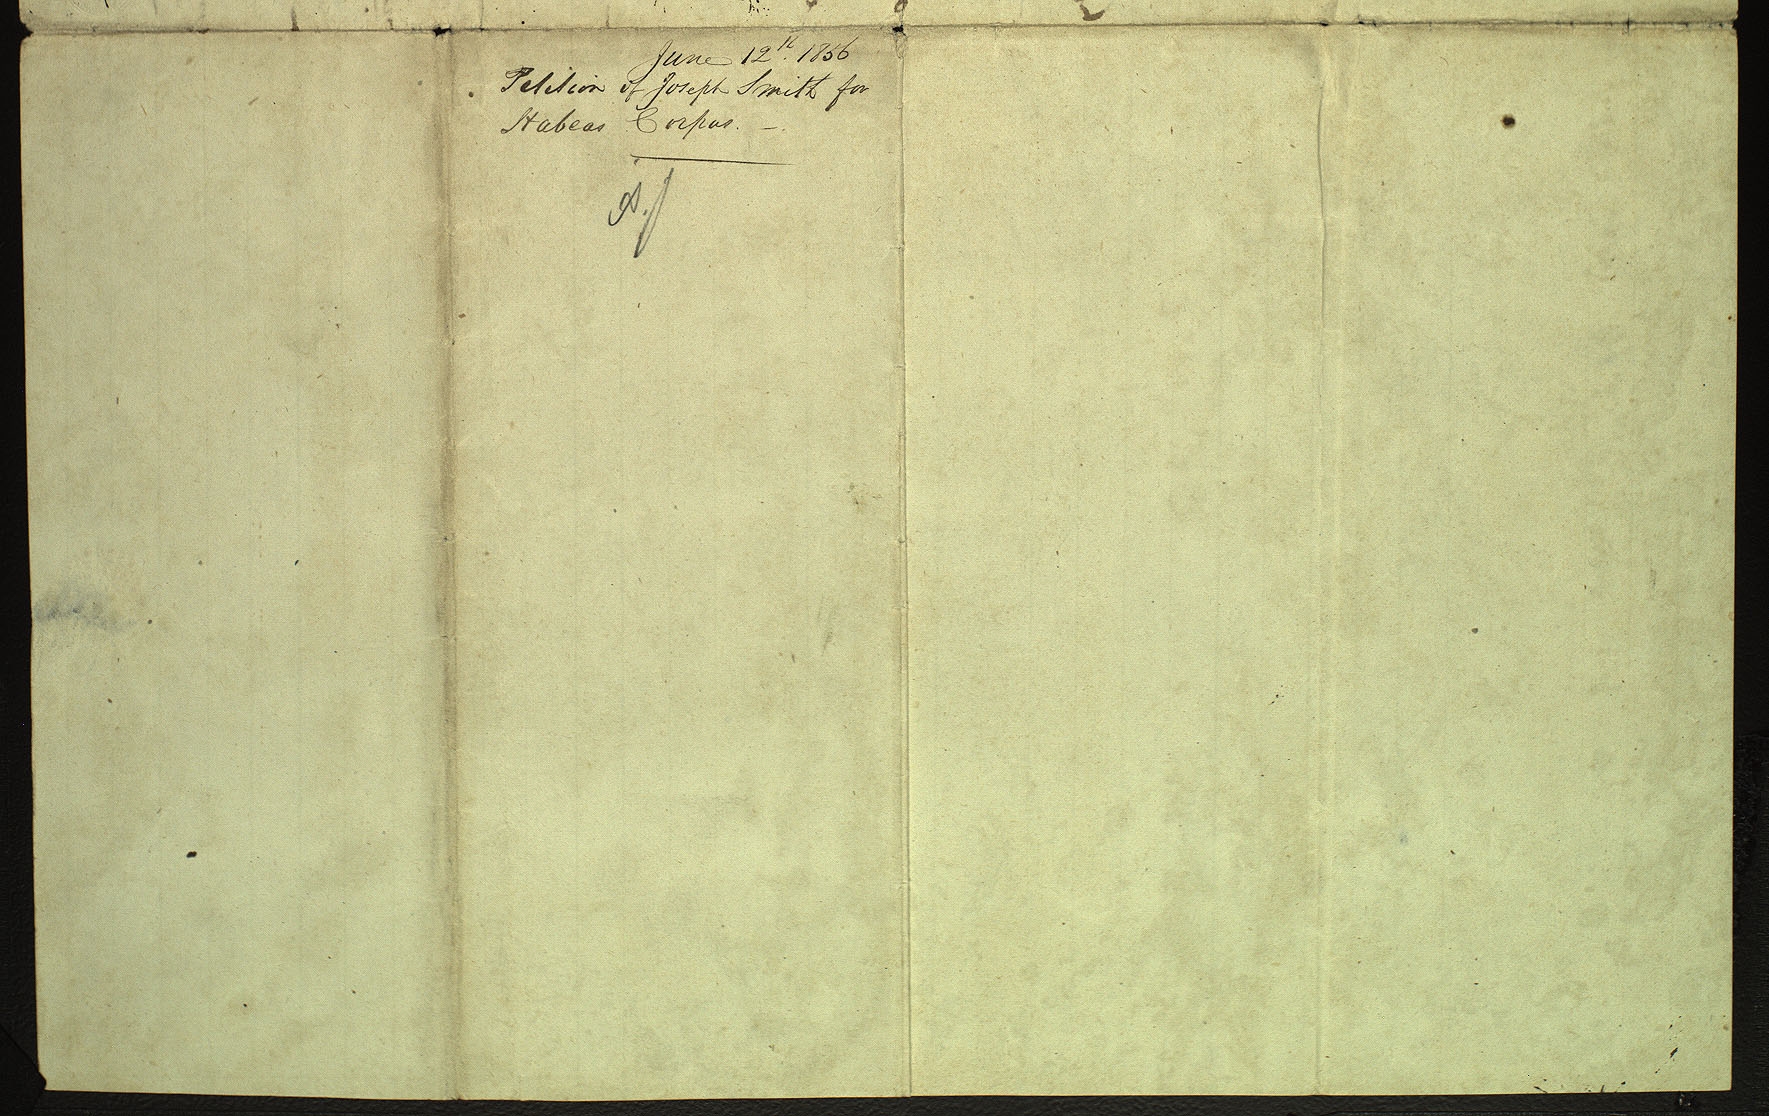 June 12th. 1856
Petition of Joseph Smith for
Habeas Corpus. –.